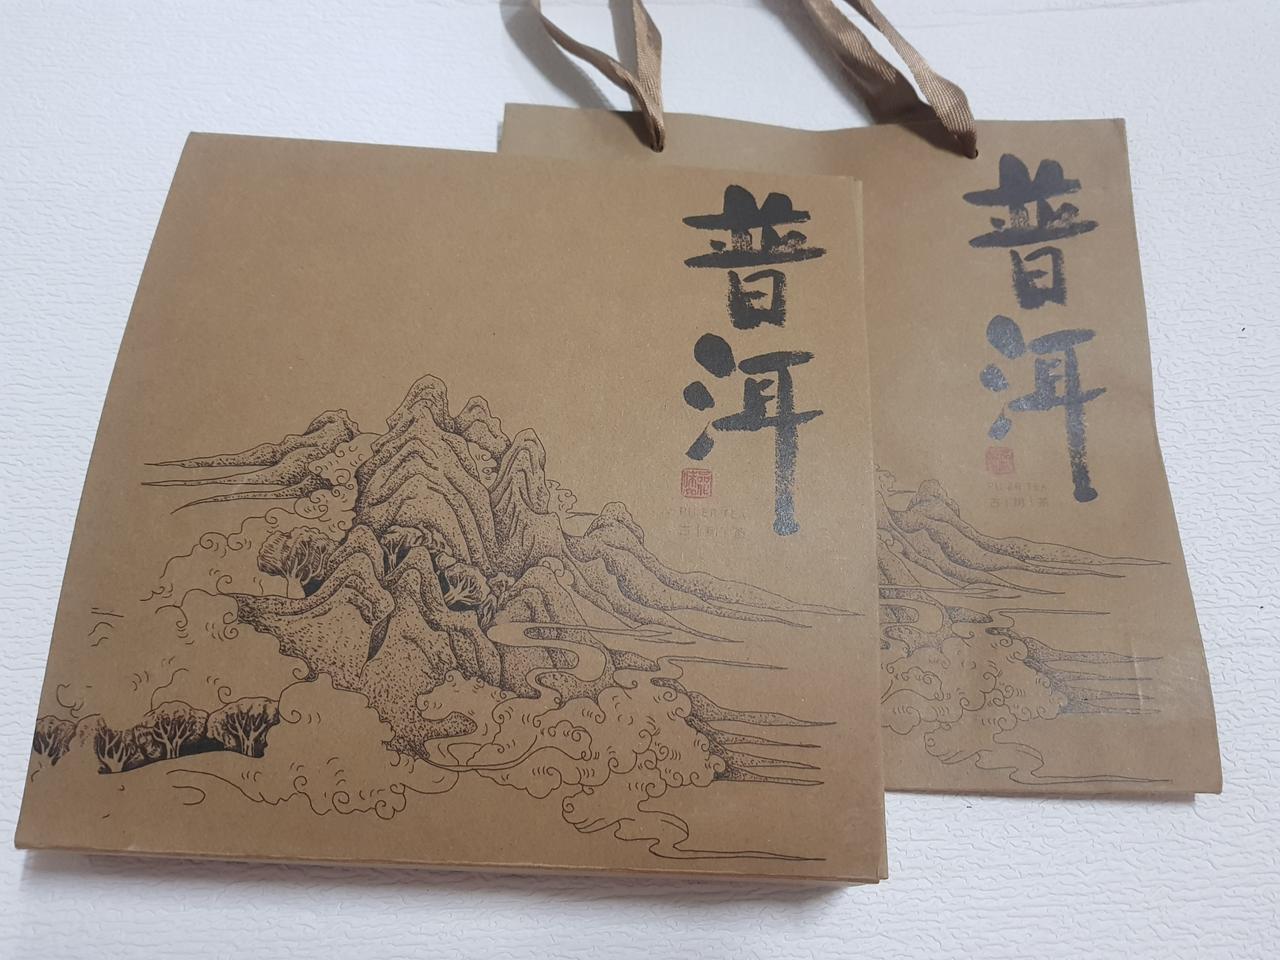 普洱
PU ER TEA
古|树|茶
普洱
PU ER TEA
古|树|茶